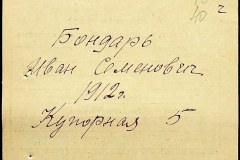 40
Бондарь
Иван Семенович
1912 г.
Купорная 5